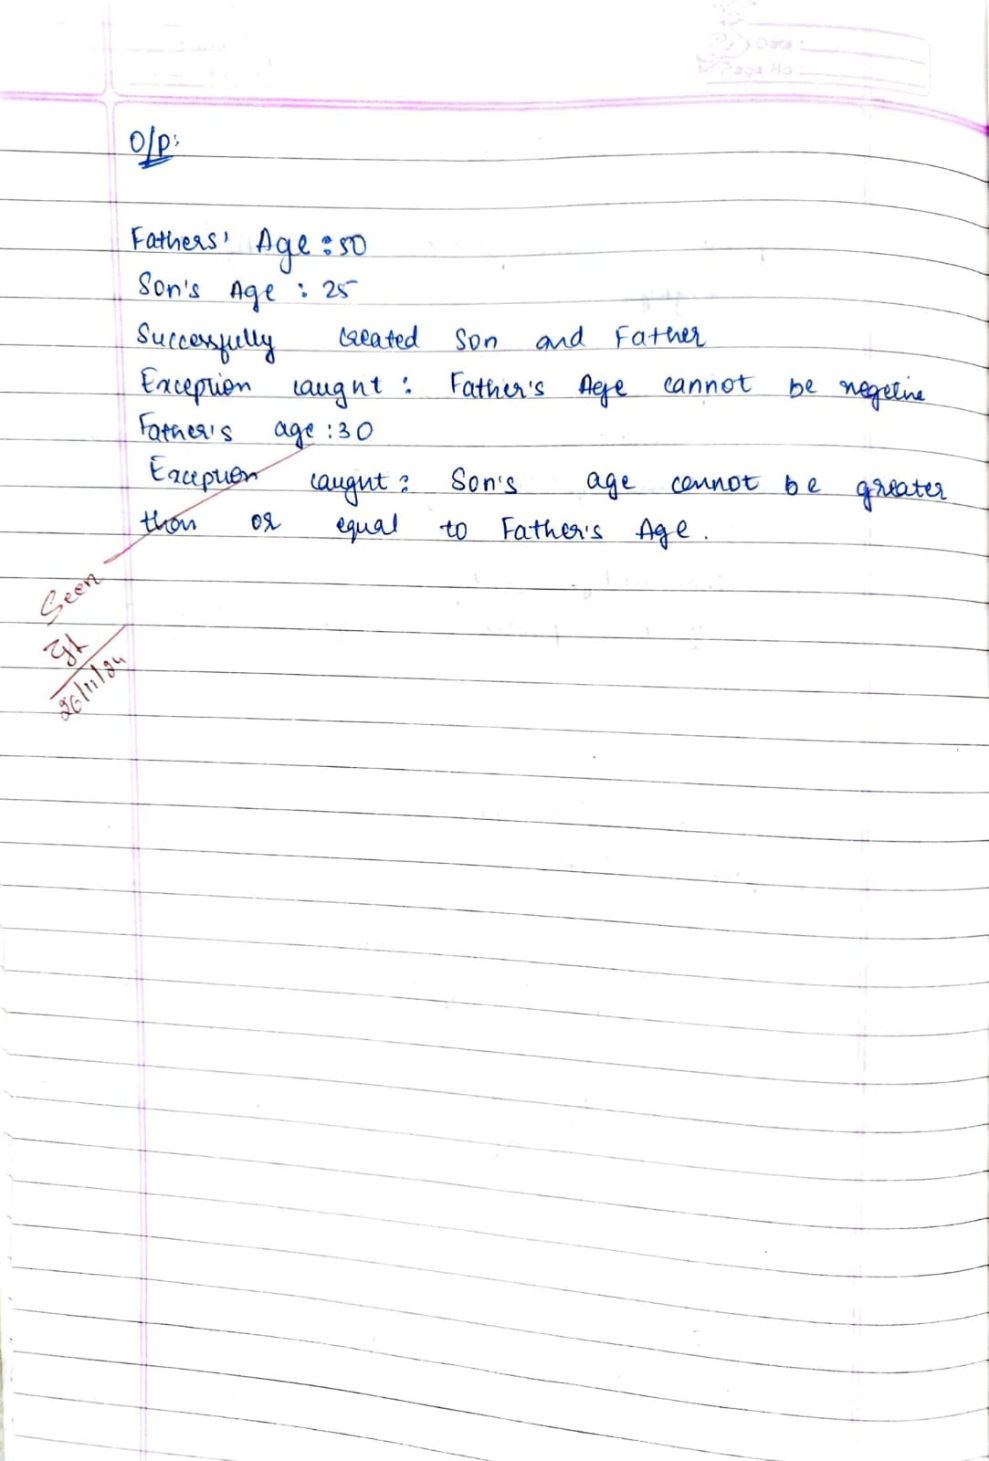 Date :
Page No :
O/P:
Fathers' Age : 50
Son's Age : 25
Successfully created Son and Father
Exception caught : Father's Age cannot be negetive
Father's age : 30
Exception caught : Son's age cannot be greater
than or equal to Father's Age .
Seen
26/11/24